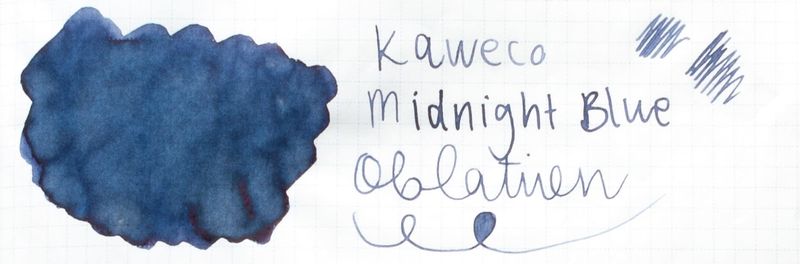 Kaweco
Midnight Blue
Oblatuen